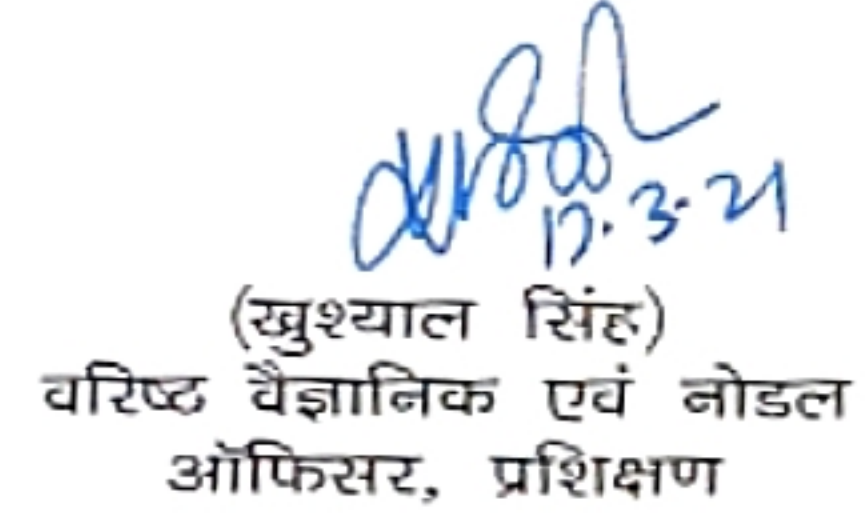 17.3.21
(खुश्याल सिंह)
वरिष्ठ वैज्ञानिक एवं नोडल
ऑफिसर, प्रशिक्षण